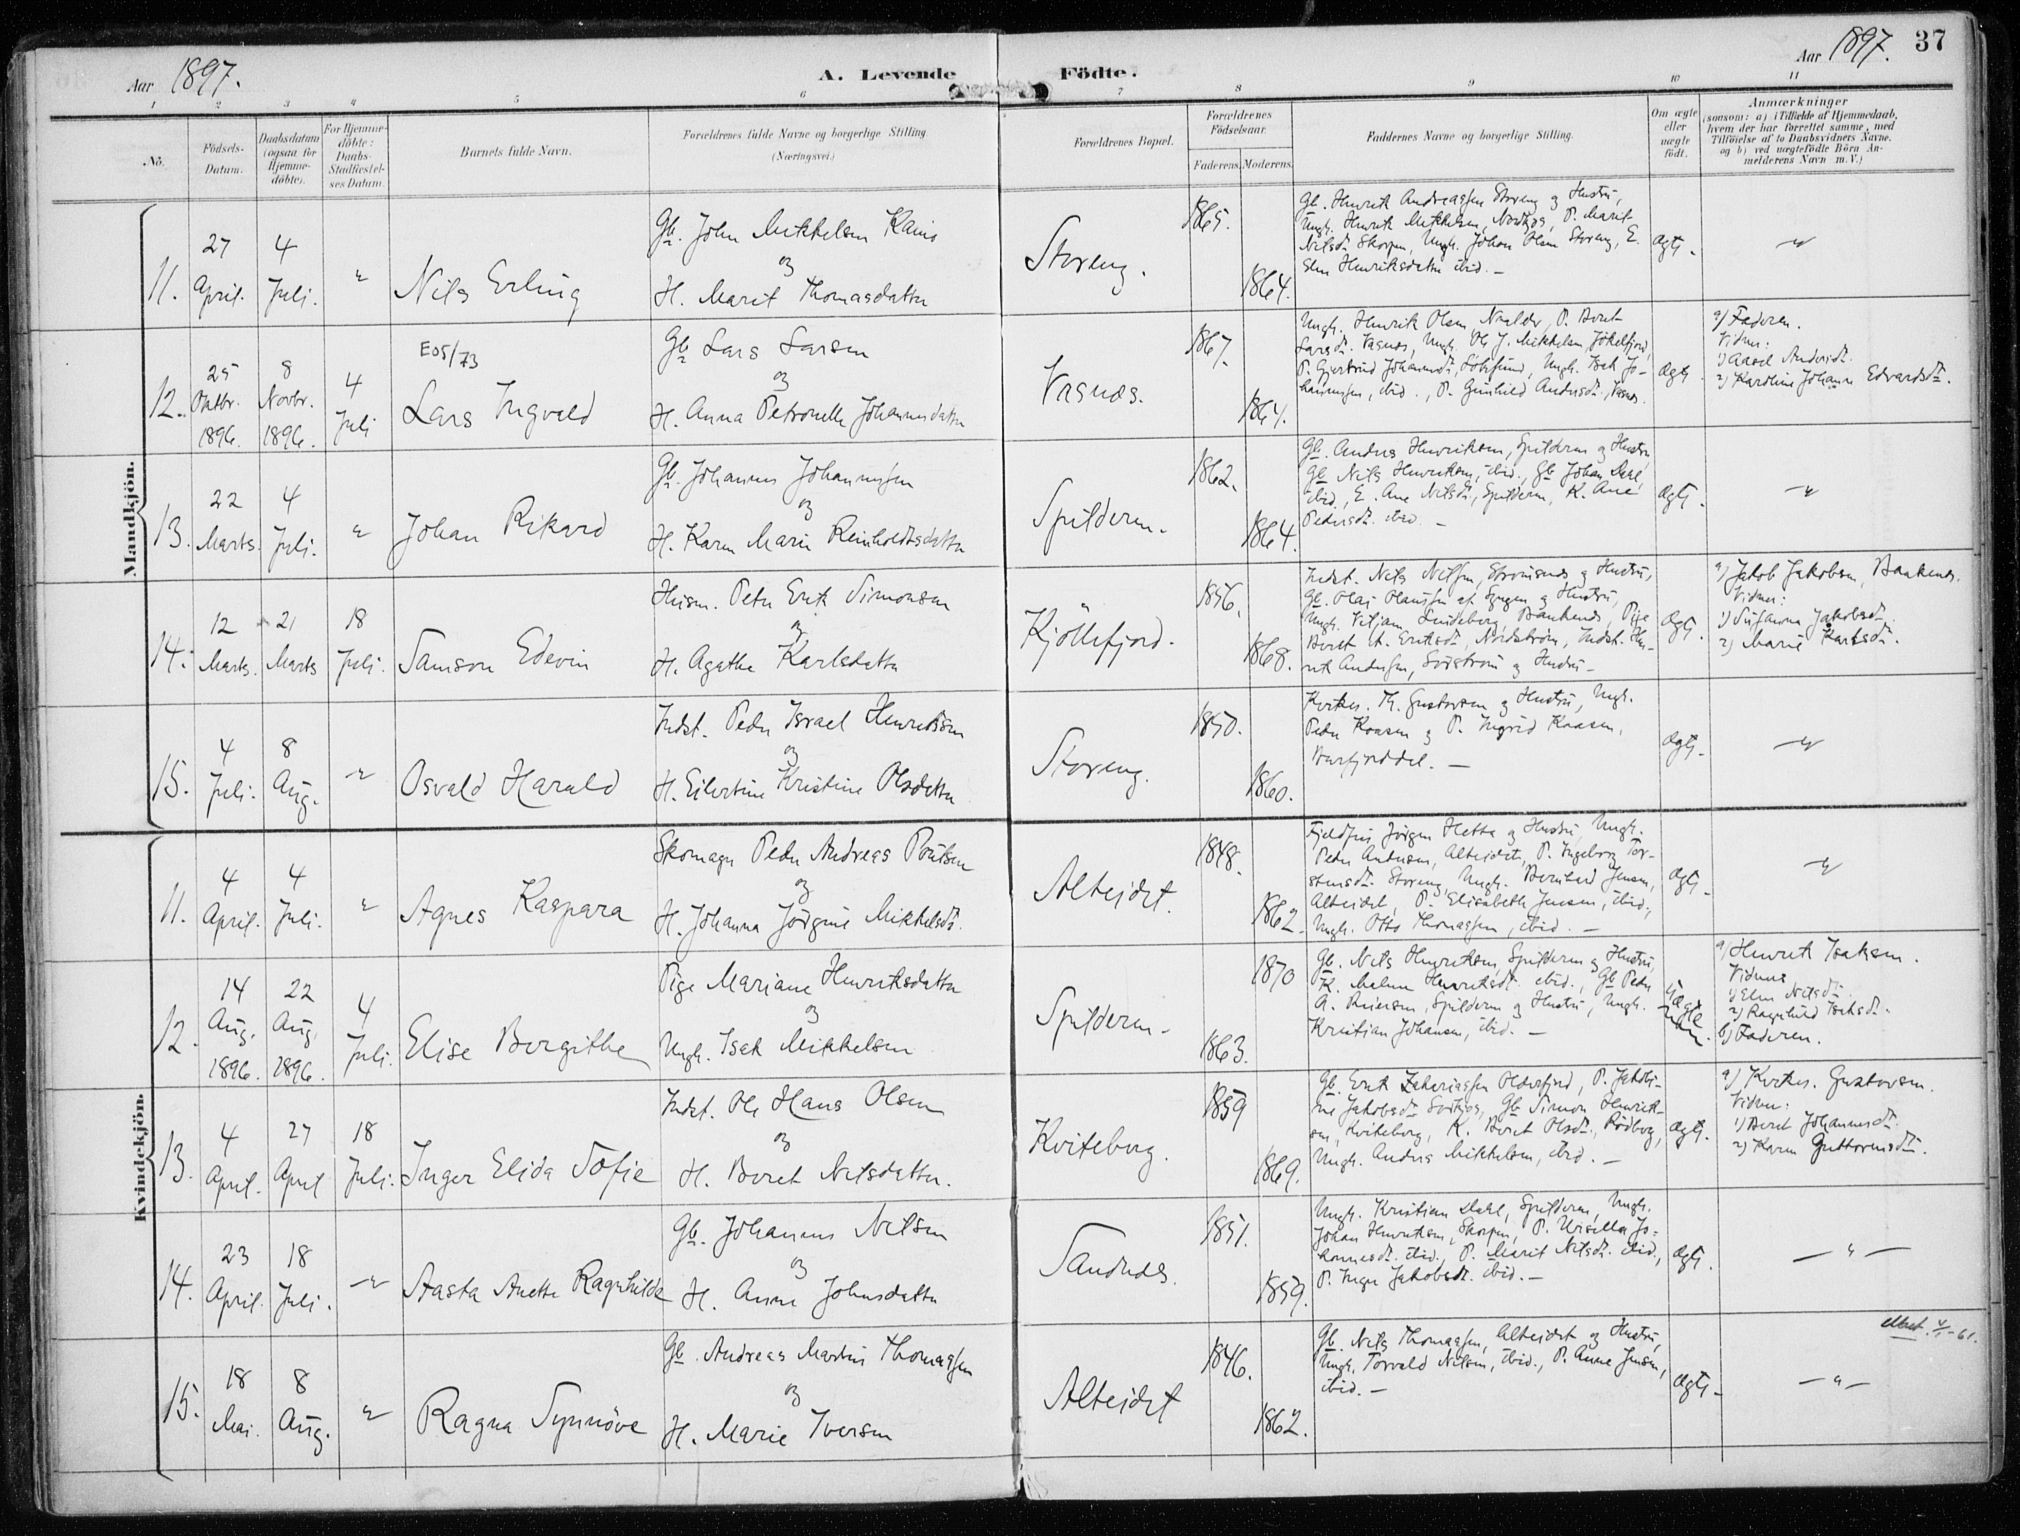 Aar 1897.
A. Levende Födte.
Aar 1897. 37
1 2 3 4 5 6 7 8 9 10 11
No.
Födsels-
Datum.
Daabsdatum
(ogsaa for
Hjemme-
döbte).
For Hjemme-
döbte:
Daabs-
Stadfæstel-
ses Datum.
Barnets fulde Navn.
Forældrenes fulde Navne og borgerlige Stilling
(Næringsvei.)
Forældrenes Bopæl.
Forældrenes
Födselsaar.
Faderens. Moderens.
Faddernes Navne og borgerlige Stilling.
Om ægte
eller
uægte
födt.
Anmærkninger
(somsom: a) i Tilfælde af Hjemmedaab,
hvem der har forrettet samme, med
Tilföielse af to Daabsvidners Navne.
og b) ved uægtefödte Börn An-
melderens Navn m. V.)
Mandkjön.
11.
27
April.
4
Juli.
"
Nils Erling
Gb. John Mikkelsen
og
H. Marit Thomasdatter
Storeng.
1865.
1864.
Gb. Henrik Andreassen Storeng og Hustru,
Ungk. Henrik Mikkelsen, P. Marit
Nilsdt. Skorpen, Ungk. Johan Olsen Storeng, E.
Elen Henriksdatter ibid. –
ægte.
"
12.
25
Oktbr.
1896.
8
Novbr.
1896.
4
Juli
E05/73
Lars Ingvald
Gb. Lars Larsen
og
H. Anna Petronelle Johannesdatter
Vasnæs.
1867.
1864.
Ungk. Henrik Olsen P. Beret
Larsdt. Vasnæs, Ungk. Ole J. Mikkelsen Jökelfjord,
P. Gjertrud Johannesdt. Ungk. Isak Jo-
hannessen, ibid., P. Gunhild Andersdt., Vasnæs.
ægte.
a) Faderen.
Vidner:
1) Andersdt.
2) Karoline Johanne Edvardsdt.
13.
22
Marts.
4
Juli.
"
Johan Rikard
Gb. Johannes Johannessen
og
H. Karen Marie Reinholdtsdatter
Spilderen.
1862.
1864.
Gb. Anders Henriksen, Spilderen og Hustru
Gb. Nils Henriksen, ibid., Gb. Johan Dahl,
ibid., E. Ane Nilsdt., Spilderen, K. Ane
Pedersdt. ibid. –
ægte.
"
14.
12
Marts.
21
Marts
18
Juli.
Samson Edevin
Husm. Peder Erik Simonsen
og
H. Agathe Karlsdatter
Kjöllefjord.
1856.
1868.
Indst. Nils Nilsen, Strömsnes og Hustru,
Gb. Olai Olaussen af og Hustru,
Ungk. Lindeberg, Pige
Beret A. Eriksdt., Nordström, Indst. Hen-
rik Andersen, og Hustru –
ægte.
a) Jakob Jakobsen,
Vidner:
1) Susanna Jakobsdt.
2) Marie Karlsdt.
15.
4
Juli.
8
Aug.
"
Osvald Harald
Indst. Peder Israel Henriksen
og
H. Eilertine Kristine Olsdatter
Storeng.
1850.
1860.
Kirkes. Th. Gustavsen og Hustru, Ungk.
Peder Kaasen og P. Ingrid Kaasen,
–
ægte.
"
Kvindekjön.
11.
4
April.
4
Juli.
"
Agnes Kaspara
Skomager Peder Andreas Poulsen
og
H. Johanna Jörgine Mikkelsdt.
Alteidet.
1848.
1862.
Jörgen Hetta og Hustru, Ungk.
Peder Andersen, Alteidet, P. Ingeborg Tor-
stensdt. Storeng, Ungk. Bernhard Jensen,
Alteidet, P. Elisabeth Jensen, ibid.,
Ungk. Otto Thomassen, ibid. –
ægte.
"
12.
14
Aug.
1896.
22
Aug.
1896.
4
Juli.
Elise Bergithe
Pige Mariane Henriksdatter
og
Ungk. Isak Mikkelsen
Spilderen.
1870
1863.
Gb. Nils Henriksen, Spilderen og Hustru,
K. Malene Henriksdt. ibid., Gb. Peder
A. Spilderen og Hustru, Ungk.
Kristian Johansen, ibid. –
Uægte
a) Henrik Isaksen.
Vidner
1) Elen Nilsdt.
2) Ragnhild Isaksdt.
b) Faderen.
13.
4
April.
27
April
18
Juli.
Inger Elida Sofie
Indst. Ole Hans Olsen
og
H. Beret Nilsdatter.
Kviteberg.
1859
1869.
Gb. Erik Zakariassen Oldersfjord, P. Jakobi-
ne Jakobsdt. Gb. Simon Henrik-
sen, Kviteberg, K. Beret Olsdt., Rödberg,
Ungk. Anders Mikkelsen, ibid. –
ægte.
a) Kirkes. Gustavsen.
Vidner:
1) Beret Johannesdt.
2) Karen Guttormsdt.
14.
23
April.
18
Juli.
"
Aasta Anette Ragnhilda
Gb. Johannes Nilsen
og
H. Anne Johnsdatter
Sandnes.
1851.
1859.
Ungk. Kristian Dahl, Spilderen, Ungk.
Johan Henriksen, Skorpen, P. Jo-
hannesdt. ibid., P. Marit Nilsdt. ibid.,
P. Inger Jakobsdt. ibid. –
ægte.
– " –
15.
18
Mai.
8
Aug.
"
Ragna Synnöve
Gb. Andreas Martin Thomassen
og
H. Marie Iversen
Alteidet
1846.
1862.
Gb. Nils Thomassen, Alteidet og Hustru,
Ungk. Torvald Nilsen, ibid., P. Anne Jensen,
ibid. –
ægte.
– " –